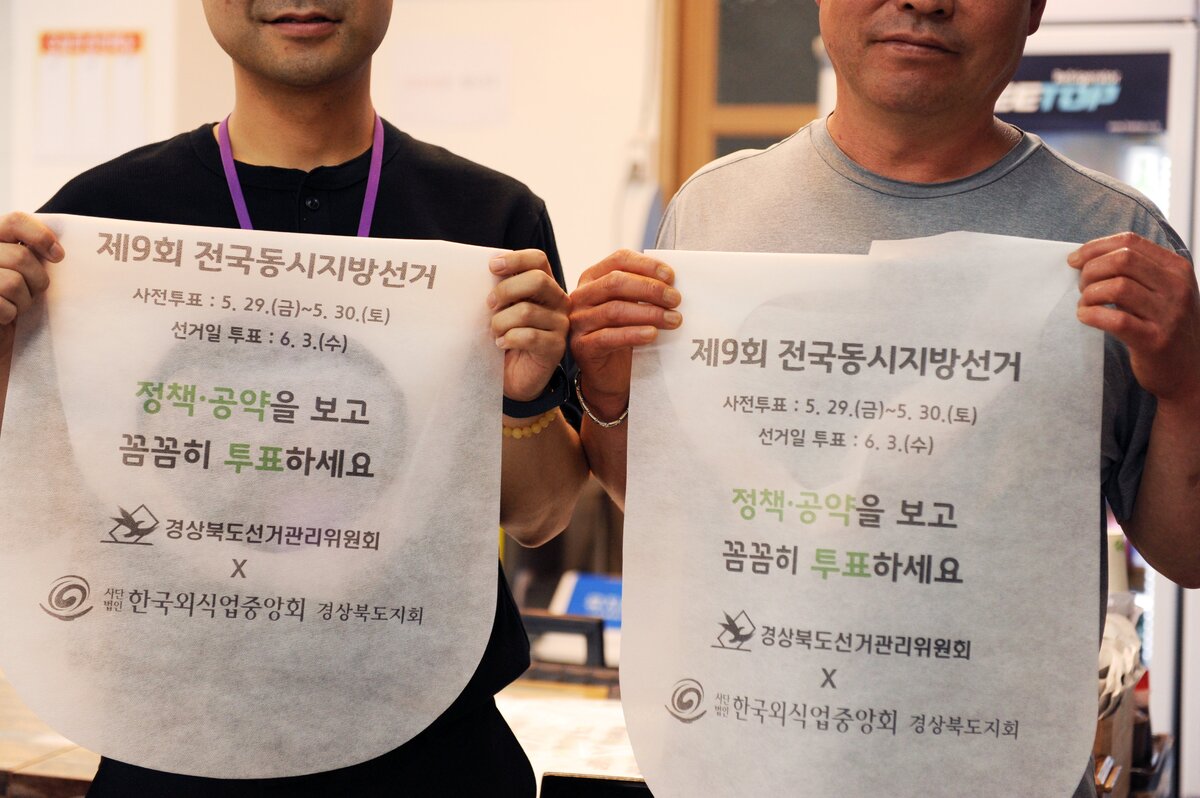 제9회 전국동시지방선거
사전투표 : 5. 29.(금)~5. 30.(토)
선거일 투표 : 6. 3.(수)
정책·공약을 보고
꼼꼼히 투표하세요
경상북도선거관리위원회
X
사단법인 한국외식업중앙회 경상북도지회
EETOP
제9회 전국동시지방선거
사전투표 : 5. 29.(금)~5. 30.(토)
선거일 투표 : 6. 3.(수)
정책·공약을 보고
꼼꼼히 투표하세요
경상북도선거관리위원회
X
사단법인 한국외식업중앙회 경상북도지회